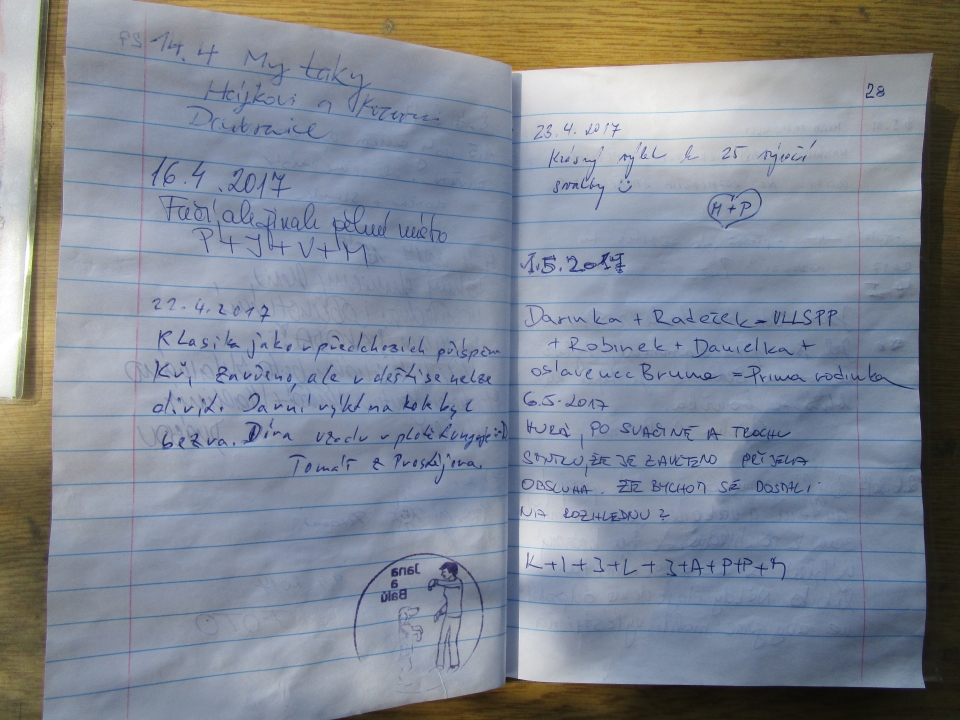 14.4 My taky
Hájkovi a
16.4.2017
Fučí, ale pěkné místo
P+J+V+M
22.4.2017
Klasika jako v předchozích příspěv
Ků, zavřeno, ale v dešti se nelze
divit. Jarní výlet na kole byl
bezva. Díra vzadu v plotě funguje :-D
Tomáš z Prostějova
Jana
a
Balů
28
23.4.2017
Krásný výlet k 25 výročí
svatby
M+P
1.5.2017
Darinka + Radeček = VLLSPP
+ Robinek + Danielka +
oslavenec Bruno = Prima rodinka
6.5.2017
HURÁ, PO SVAČINĚ A TROCHU
SMUTKU, ŽE JE ZAVŘENO PŘIJELA
OBSLUHA. ŽE BYCHOM SE DOSTALI
NA ROZHLEDNU?
K+I+J+L+J+A+P+P+M